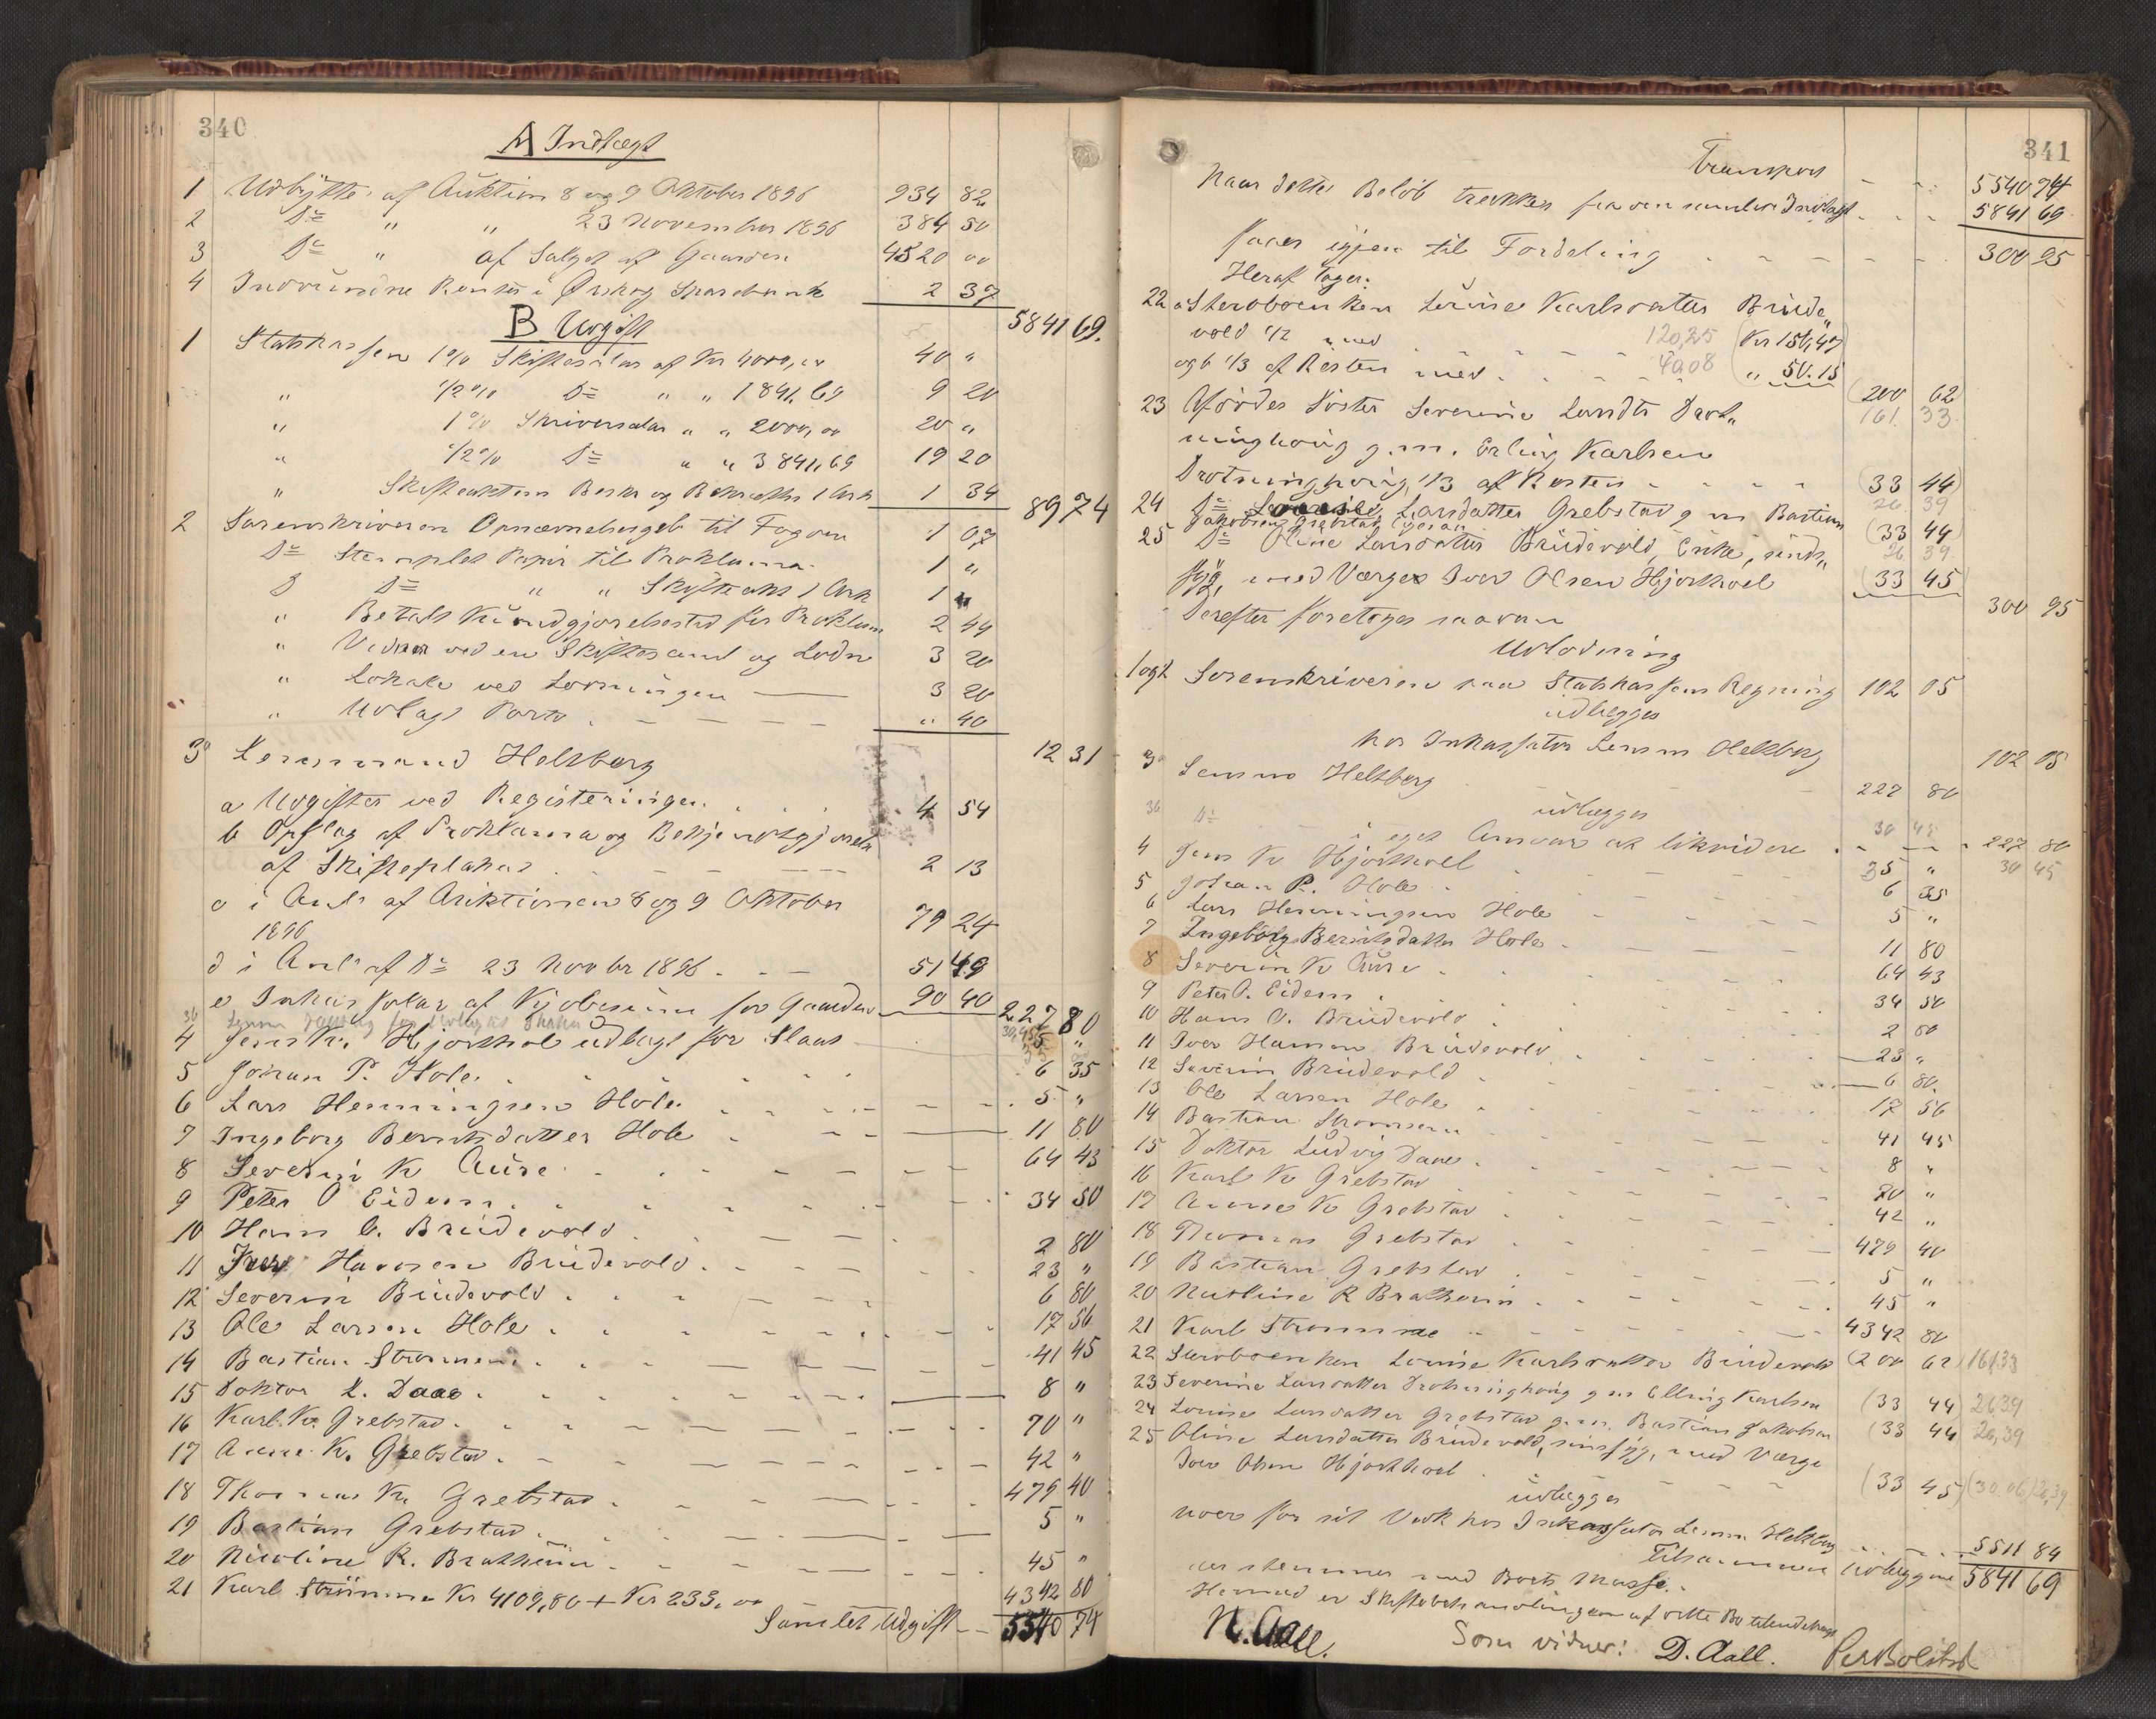 340
A Indtægt
1 Udbytte af Auktion 8 og 9 Oktober 1896 934 82
2 Do " " 23 November 1896 384 50
3 Do " af Salget af Gaarden 4520 00
4 Indvundne Renter i Ørskog Sparebank 2 37
5841 69.
B Udgift
1 Statskassen 1% Skiftesalær af Kr 4000,00 40 "
" 1/2% Do " " 1841,69 9 20
" 1% Skriversalær " " 2000,00 20 "
" 1/2% Do " " 3841,69 19 20
" Skifteakten Besk og Bekræftn 1 Ark 1 34
89 74
2 Sorenskriveren Opnævnelsesgeb til Fogden 1 07
Do Stemplet Papir til Proklama 1 "
D Do " " Skifteakt 1 Ark 1 "
" Betalt Kundgjørelsestid for Proklam 2 44
" Vidner ved en Skiftesaml og Lodn 3 20
" Lokale ved Lodningen 3 20
" Udlagt Porto " 40
12 31
3a Lensmand Helsberg
a Udgifter ved Registeringen 4 54
b Opslag af Proklama og Bekjendtgjørelse
af Skifteplakat 2 13
c i Anl af Auktionen 8 og 9 Oktober
1896 79 24
d i Anl af Do 23 Novbr 1896 51 49
e Inkassosalær af Kjøbesum for Gaarden 90 40
227 80
3b
30,45
4 Jens Kn. Hjorthol udlagt for Slaat 35 "
5 Johan P. Hole 6 35
6 Lars Henningsen Hole 5 "
7 Ingeborg Berntsdatter Hole 11 80
8 Severin K Aure 64 43
9 Peter O Eidem 34 50
10 Hans O. Brudevold 2 80
11 Iver Hansen Brudevold 23 "
12 Severin Brudevold 6 80
13 Ole Larsen Hole 17 56
14 Bastian Strømmen 41 45
15 Doktor L. Daae 8 "
16 Karl K. Grebstad 70 "
17 Anne K. Grebstad 42 "
18 Thomas K. Grebstad 479 40
19 Bastian Grebstad 5 "
20 Nicoline R. Brathenn 45 "
21 Karl Strømme Kr 4109,80 + Kr 233,00 4342 80
Samlet Udgift 5540 74
341
Transport 5540 74
Naar dette Beløb trækkes fra den samlede Indtægt 5841 69
faaes igjen til Fordeling 300 95
Heraf tager:
22 a Sterboenken Louise Karlsdatter Brude„
vold 1/2 med 120,25 (Kr 150,47
og b 1/3 af Resten med 40,08 " 50.15
(200 62)
161 33
23 Afdødes Søster Severine Larsdtr Drot„
ninghoug g.m. Erling Karlsen
Drotninghoug, 1/3 af Resten (33 44)
26 39
24 Do Louise Larsdatter Grebstad g m Bastian
Jakobsen Grebstad (33 44)
26 39
25 Do Oline Larsdatter Brudevold, Enke, sinds„
syg, med Værge Iver Olsen Hjorthoel (33 45)
300 95
Derefter foretoges saadan
Udlodning
1 og 2 Sorenskriveren paa Statskassens Regning 102 05
udlægges
hos Inkassator Lensm Helsberg 102 05
3a Lensmd Helsberg 227 80
udlægges
3b Do 30 45
i eget Ansvar at likvidere 227 80
30 45
4 Jens K Hjorthoel 35 "
5 Johan P. Hole 6 35
6 Lars Henningsen Hole 5 "
7 Ingeborg Berntsdatter Hole 11 80
8 Severin K Aure 64 43
9 Peter O. Eidem 34 50
10 Hans O. Brudevold 2 80
11 Iver Hansen Brudevold 23 "
12 Severin Brudevold 6 80
13 Ole Larsen Hole 17 56
14 Bastian Strømmen 41 45
15 Doktor Ludvig Daae 8 "
16 Karl K Grebstad 70 "
17 Anne K Grebstad 42 "
18 Thomas Grebstad 479 40
19 Bastian Grebstad 5 "
20 Nicoline R Brathenn 45 "
21 Karl Strømme 4342 80
22 Sterboenken Louise Karlsdatter Brudevold (200 62) 161,33
23 Severine Larsdatter Drotninghoug g m Elling Karlsen (33 44) 26,39
24 Louise Larsdatter Grebstad g.m. Bastian Jakobsen (33 44) 26,39
25 Oline Larsdatter Brudevold, sindssyg, med Værge
Iver Olsen Hjorthoel (33 45) (30.06) 26,39
udlægges
hver for sit Vedk hos Inkassator Lensm Helsberg 5511 84
Tilsammen udlæggene 5841 69
der stemmer med Boets Masse.
Hermed er Skiftebehandlingen af dette Bo tilendebragt
N. Aall.
Som vidner: D. Aall. Per Bolstad